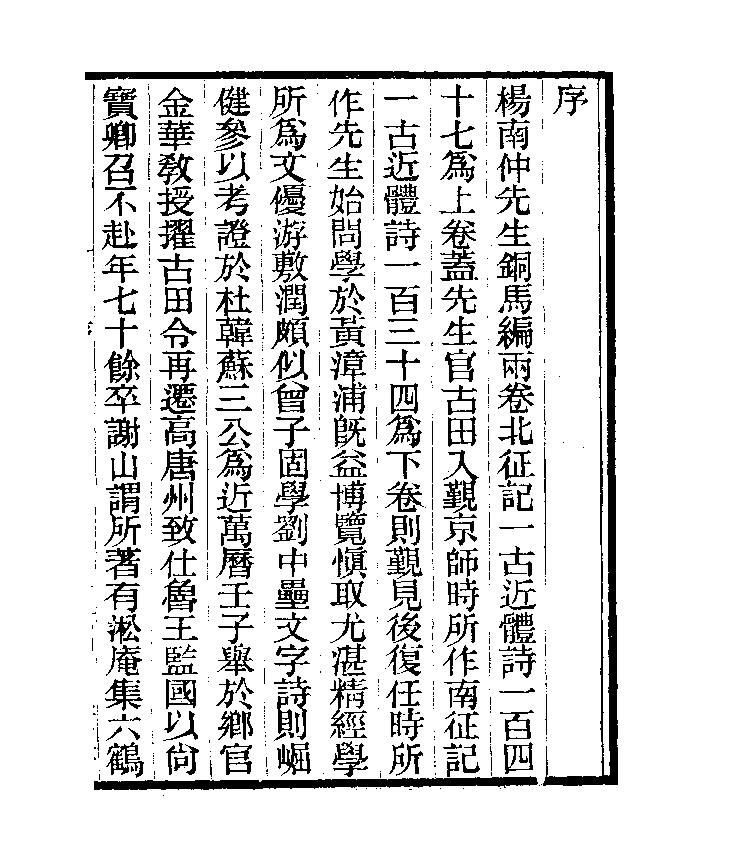 序
楊南仲先生銅馬編兩卷北征記一古近體詩一百四
十七爲上卷蓋先生官古田入覲京師時所作南征記
一古近體詩一百三十四爲下卷則覲見後復任時所
作先生始問學於黃漳浦旣益博覽愼取尤湛精經學
所爲文優游敷潤頗似曾子固學劉中壘文字詩則崛
健參以考證於杜韓蘇三公爲近萬曆壬子舉於鄉官
金華敎授擢古田令再遷高唐州致仕魯王監國以尙
寶卿召不赴年七十餘卒謝山謂所著有淞庵集六鶴